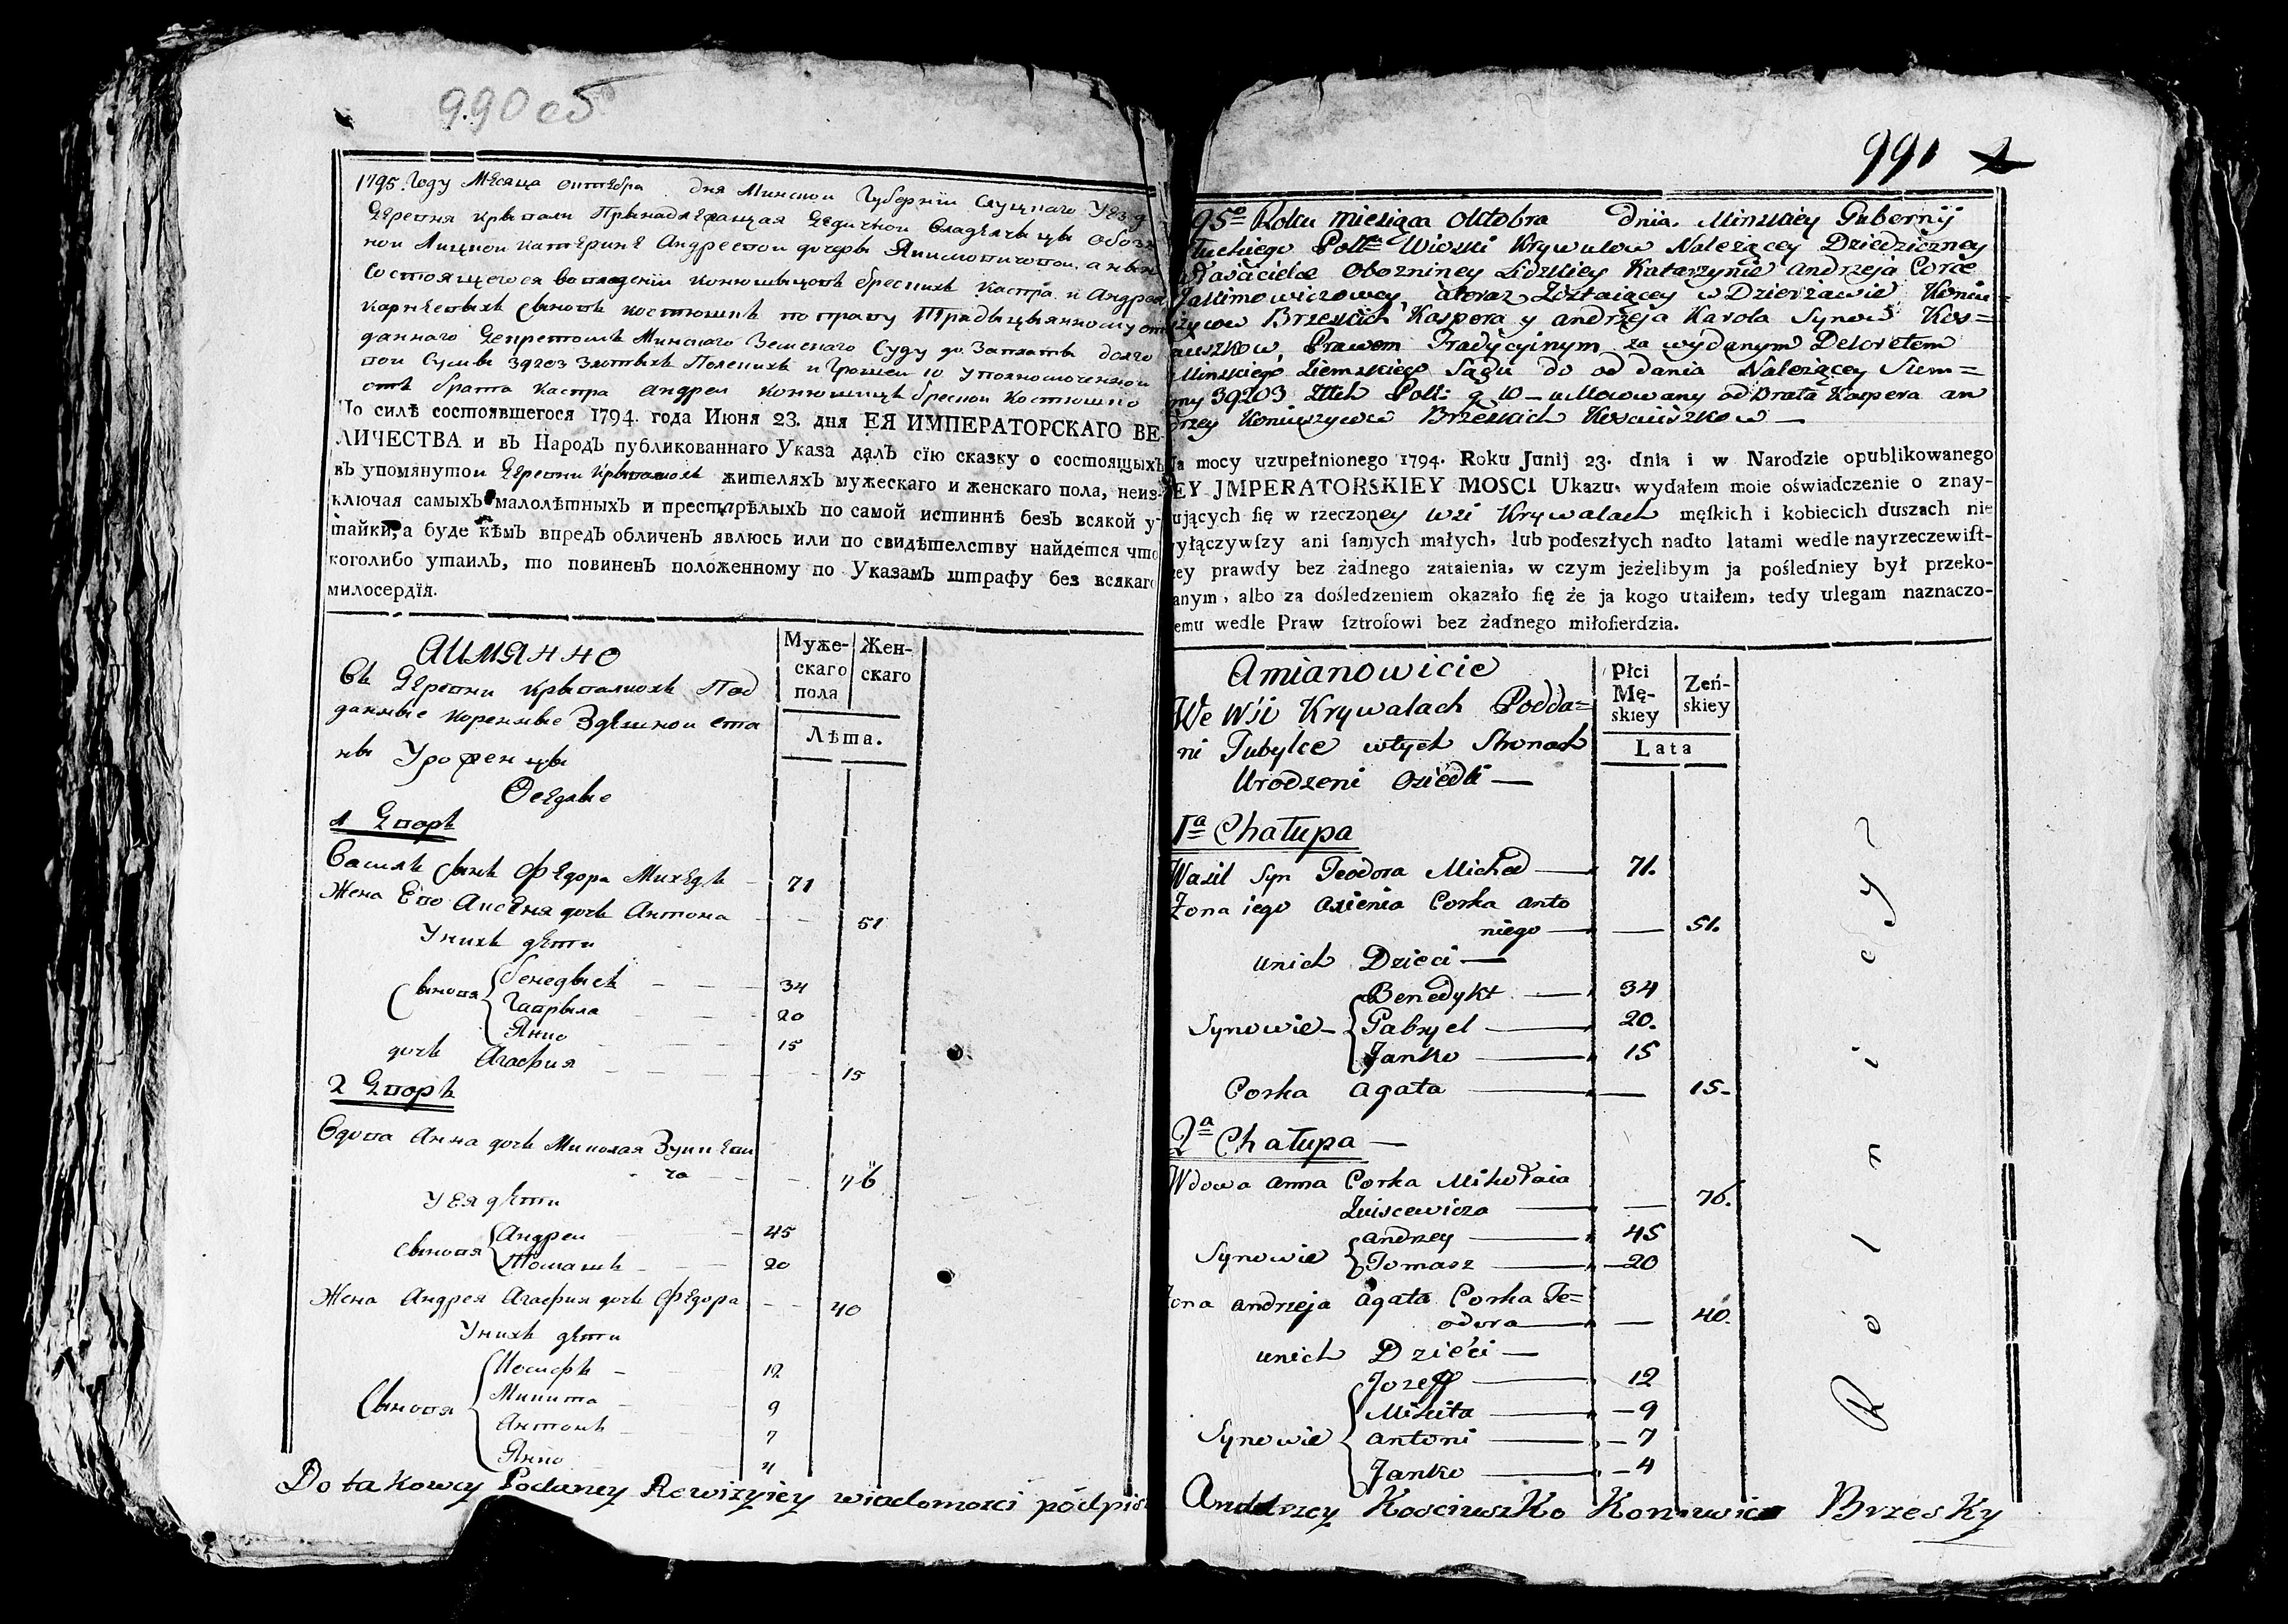 990 об
1795. Году Месяца октебра дня Минскои Губернїи Слуцкаго Уезд
Деревня Крывали Принадлежащая Дедичнои Владелницы Обозн
нои Лидскои Катерине Андреевои дочеры Якимовичовои, а нын
Состоящегося во владении Конюшыцовъ брескихъ Каспра и Андрея
Карнеевыхъ сыновъ Костюшкъ по праву Традыцыянному от
даннаго Декретомъ Минскаго Земскаго Суду до Заплаты долго
вои Сумы 39203 Злотыхъ Полскихъ и Грошеи 10 Уполномоченнои
отъ брата Каспра Андреи Конюшицъ брескои Костюшко
По силѣ состоявшегося 1794. года Июня 23. дня ЕЯ ИМПЕРАТОРСКАГО ВЕ-
ЛИЧЕСТВА и въ Народъ публикованнаго Указа далъ сїю сказку о состоящыхъ
въ упомянутои деревни Крывалюхъ жителяхъ мужескаго и женскаго пола, неиз-
ключая самыхъ малолѣтныхъ и престарѣлыхъ по самой истиннѣ безъ всякой у-
тайки, а буде кѣмъ впредъ обличенъ явлюсь или по свидѣтелству найдется что
коголибо утаилъ, то повиненъ положенному по Указамъ штрафу без всякаго
милосердїя.
аимянно
Муже-
скаго
пола
Жен-
скаго
Лѣта.
Въ Деревни Крывалюхъ Под
данные коренные Здешнои ста
ны Уроженцы
Оседлые
1 Дворъ
Василь сынъ Федора Михедъ 71
Жена Его Аксеня дочь Антона 51
У нихъ дети
сыновя Бенедыктъ 34
Гаврыла 20
Янко 15
дочь Агафия 15
2 Дворъ
Вдова Анна дочь Миколая Зуикеви
ча 76
У Ея дети
сыновя Андреи 45
Томашъ 20
Жена Андрея Агафия дочь Федора 40
У нихъ дети
Сыновя Иосифъ 12
Микита 9
Антонъ 7
Янко 4
Do takowey Podaney Rewizyiey wiadomosci podpis
991
95º Roku miesiąca Oktobra dnia. Minskiey Gubernij
łuckiego Pottu Wioski Krywulow Należącey Dziedziczney
Własciciełce Obozniney Lidzkiey Katarzynie Andrzeja Corce
Jakimowiczowey, a teraz Zostaiącey w Dzierżawie Koniu=
szycow Brzeskich Kaspera y Andrzeja Karola Synow Kos=
ciuszkow, Prawem Tradycyinym za wydanym Dekretem
Minskiego Ziemskiego Sądu do oddania Należącey Sum=
my 39203 Złtch Polk: g 10 – umocowany od Brata Kaspera An
drzey Koniuszycow Brzeskich Kosciuszkow —
Na mocy uzupełnionego 1794. Roku Junij 23. dnia i w Narodzie opublikowanego
EY JMPERATORSKIEY MOSCI Ukazu, wydałem moie oświadczenie o znay-
ujących się w rzeczoney wsi Krywalach męskich i kobiecich duszach nie
yłączywszy ani samych małych, lub podeszłych nadto latami wedle nayrzeczewist-
zey prawdy bez żadnego zataienia, w czym jeżelibym ja pośledniey był przeko-
anym, albo za dośledzeniem okazało się że ja kogo utaiłem, tedy ulegam naznaczo-
emu wedle Praw sztrofowi bez żadnego miłosierdzia.
Amianowicie
Płci
Mę-
skiey
Zeń-
skiey
Lata
We Wśi Krywalach Podda=
ni Tubylce w tych Stronach
Urodzeni Osiedli —
1ª Chałupa
Wasil Syn Teodora Miched — 71.
Zona iego Axienia Corka Anto
niego — 51.
unich Dzieci —
Synowie – Benedykt — 34
Gabryel — 20.
Janko — 15
Corka Agata — 15.
2ª Chałupa —
Wdowa Anna Corka Mikołaia
Zuiscewicza — 76.
Synowie Andrzey — 45
Tomasz — 20
Zona Andrzeja Agata Corka Te=
odora — 40.
unich Dzieći —
Synowie Jozeff — 12
Mikita — 9
Antoni — 7
Janko — 4
Rolnicy
Anddrzey KosciuszKo Koniuwicz BrzesKy